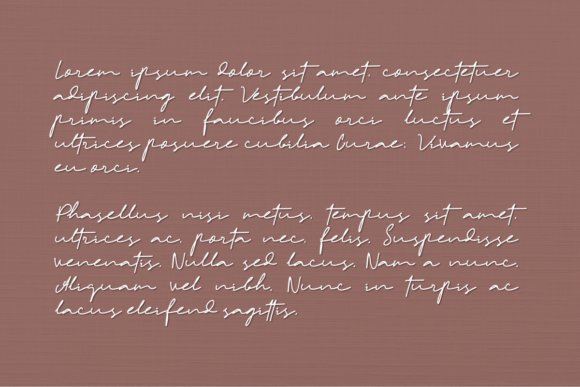 Lorem ipsum dolor sit amet, consectetuer
adipiscing elit. Vestibulum ante ipsum
primis in faucibus orci luctus et
ultrices posuere cubilia Curae; Vivamus
eu orci.
Phasellus nisi metus, tempus sit amet,
ultrices ac, porta nec, felis. Suspendisse
venenatis. Nulla sed lacus. Nam a nunc.
Aliquam vel nibh. Nunc in turpis ac
lacus eleifend sagittis.